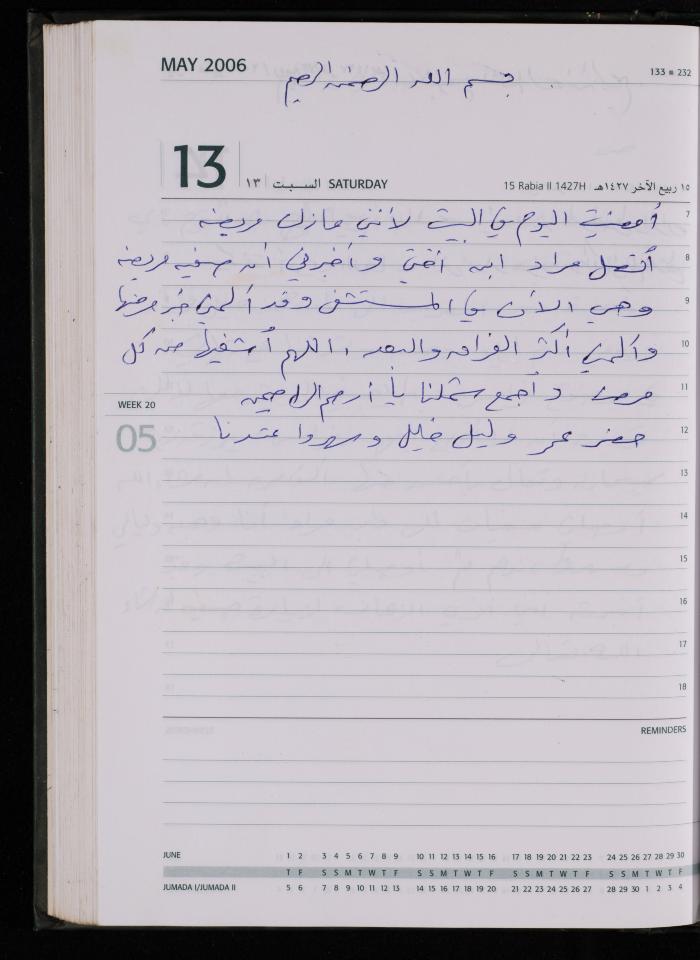 MAY 2006
بسم الله الرحمن الرحيم
133 ■ 232
13 ١٣ السبت SATURDAY 15 Rabia II 1427H ١٥ ربيع الآخر ١٤٢٧هـ
7
أمضيت اليوم في البيت لأنني مازلت مريضة
8
أتصل مراد ابن أختي وأخبرني أن صفيه مريضه
9
وهي الآن في المستشفى وقد ألمني خبر مرضها
10
وألمني أكثر الفراق والبعد ، اللهم أشفيها من كل
11
مرض وأجمع شملنا يا أرحم الراحمين
WEEK 20
12
حضر عمر وليل خليل وسهروا عندنا
05
13
14
15
16
17
18
REMINDERS
JUNE 1 2 3 4 5 6 7 8 9 10 11 12 13 14 15 16 17 18 19 20 21 22 23 24 25 26 27 28 29 30
T F S S M T W T F S S M T W T F S S M T W T F S S M T W T F
JUMADA I/JUMADA II 5 6 7 8 9 10 11 12 13 14 15 16 17 18 19 20 21 22 23 24 25 26 27 28 29 30 1 2 3 4